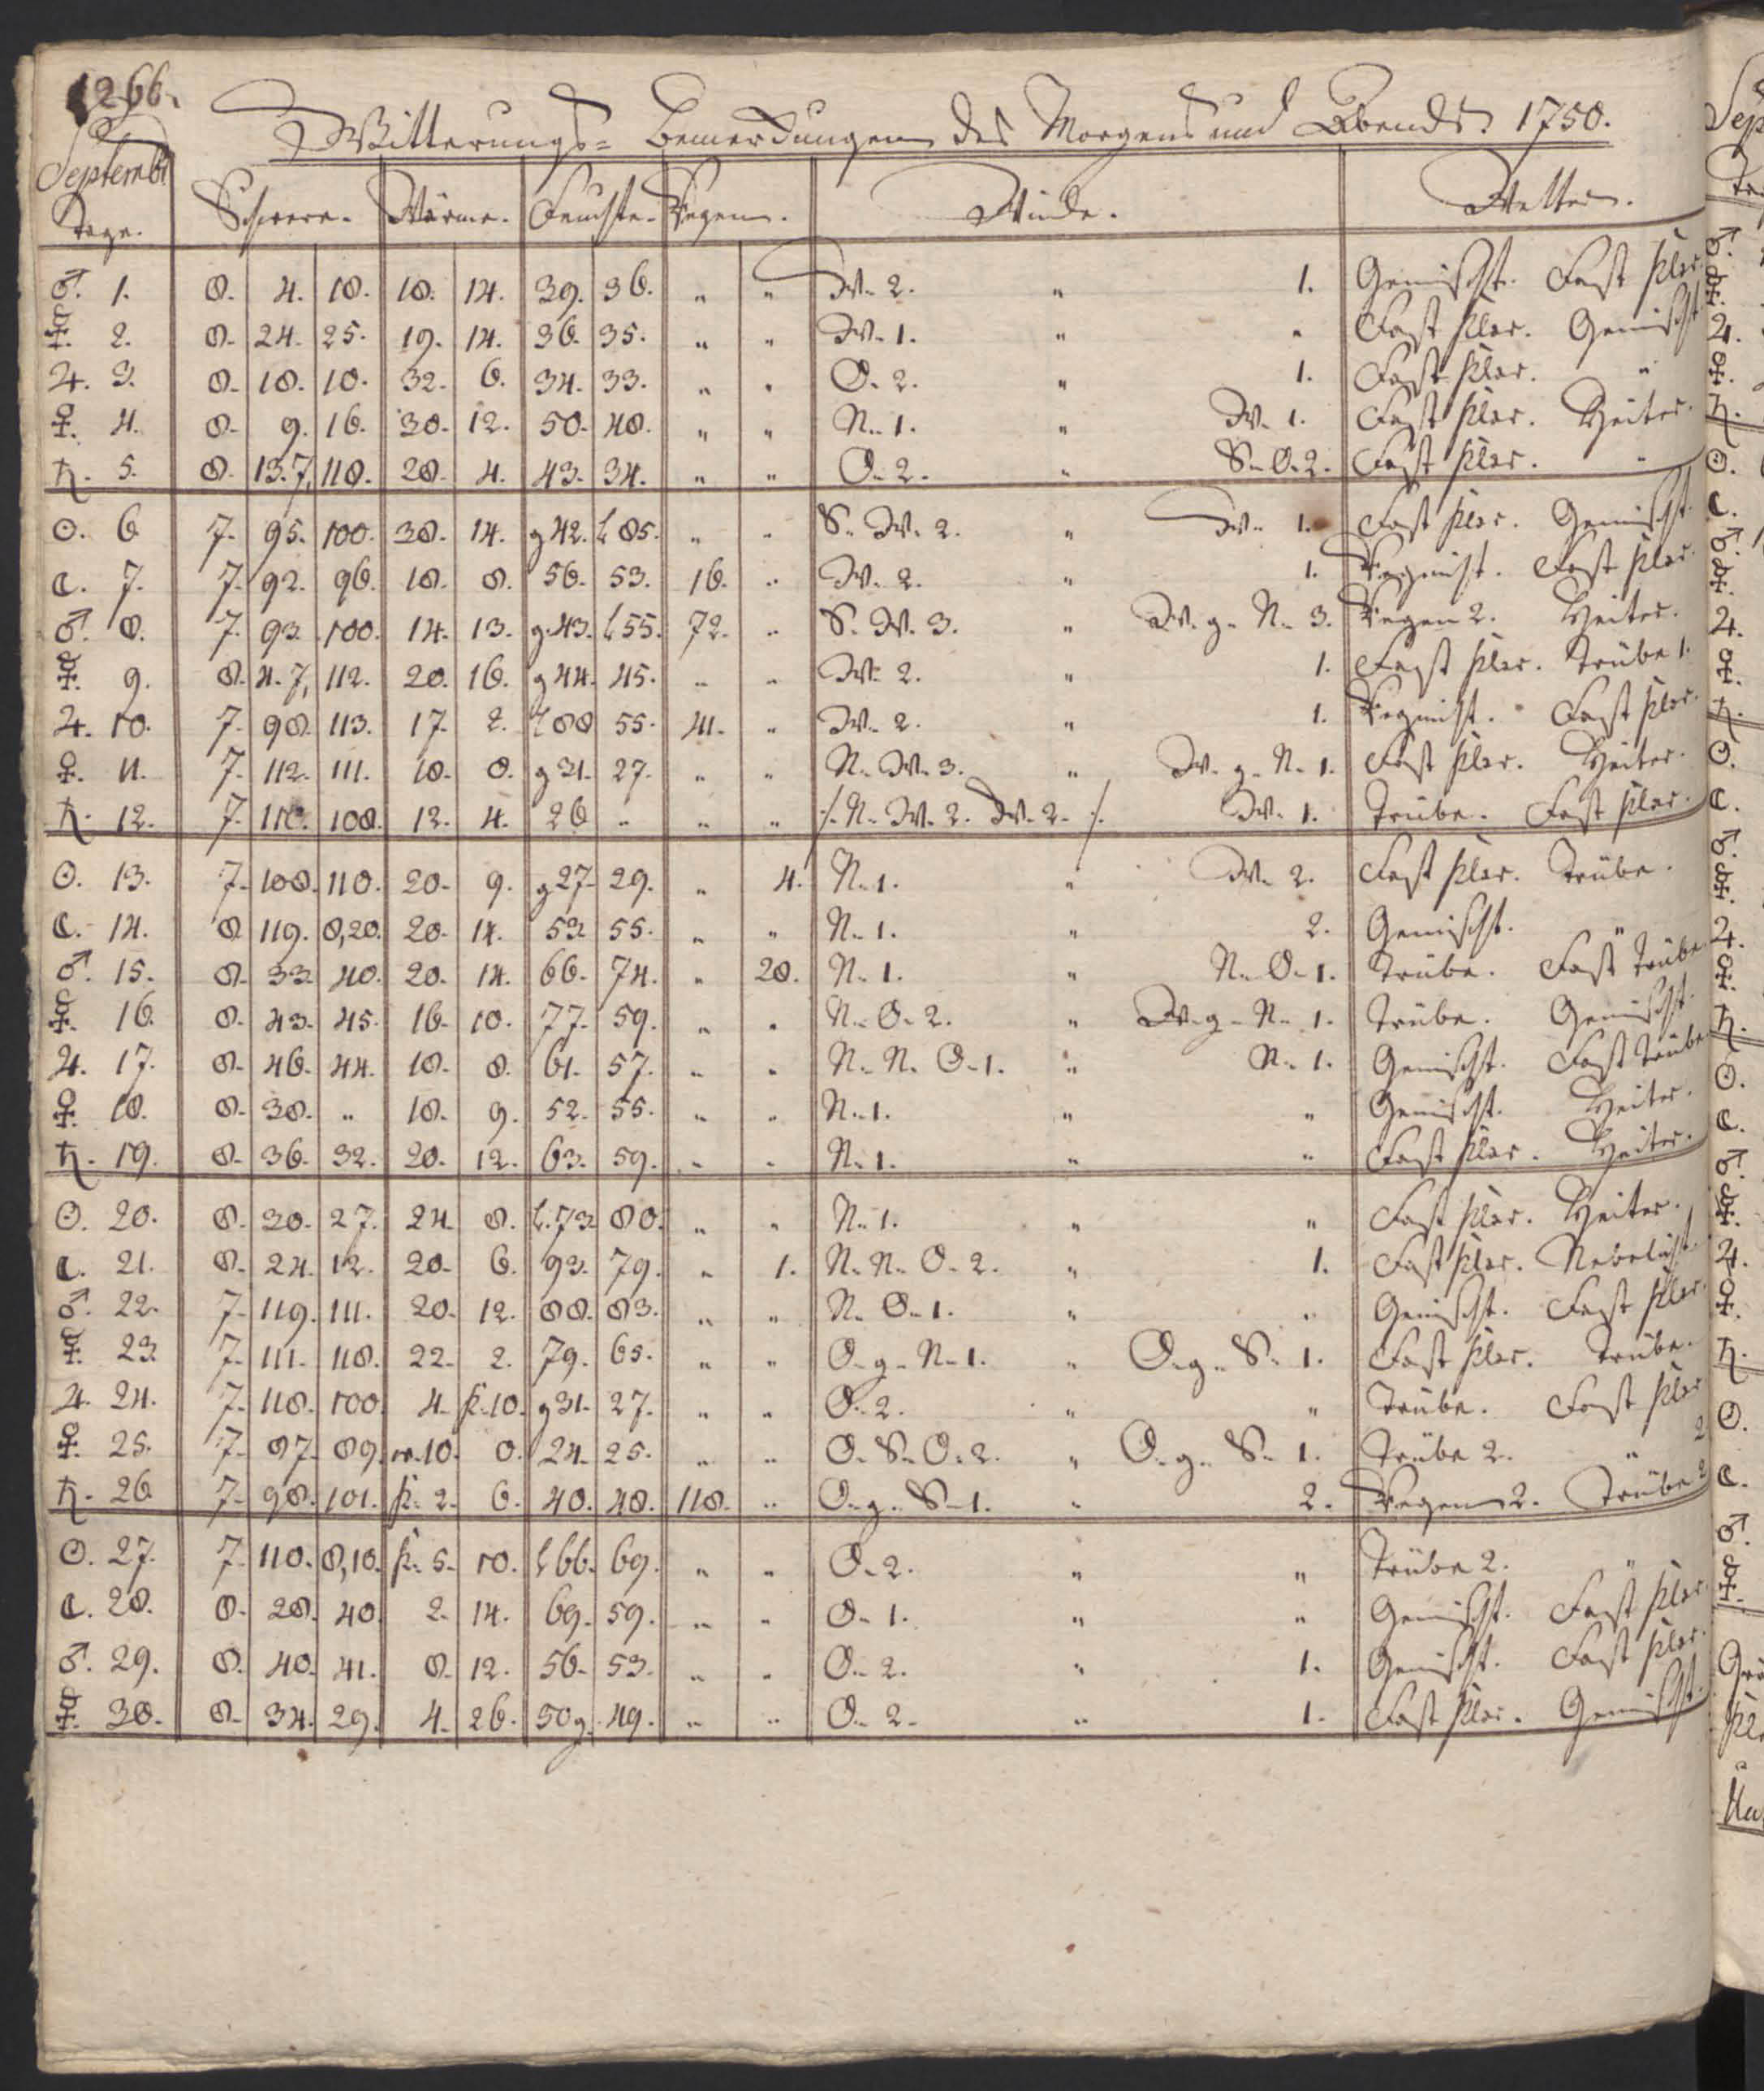 1266.
Witterungs- Bemerckungen des Morgens und Abends. 1750.
Septembr
Tage. Schwere. Wärme. Feuchte. Regen. Winde. Wetter.
♂. 1. 8. 4. 18. 18. 14. 39. 36. " " W. 2. " 1. Gemischt. Fast klar.
☿. 2. 8. 24. 25. 19. 14. 36. 35. " " W. 1. " " Fast klar. Gemischt
♃. 3. 8. 18. 10. 32. 6. 34. 33. " " O. 2. " 1. Fast klar. "
♀. 4. 8. 9. 16. 30. 12. 50. 48. " " N. 1. " W. 1. Fast klar. Heiter.
♄. 5. 8. 13. 7,118. 28. 4. 43. 34. " " O. 2. " S. O. 2. Fast klar. "
☉. 6. 7. 95. 100. 38. 14. g 42. l 85. " " S. W. 2. " W. 1. Fast klar. Gemischt.
☾. 7. 7. 92. 96. 18. 8. 56. 53. 16. " W. 2. " 1. Regnicht. Fast klar.
♂. 8. 7. 93. 100. 14. 13. g. 43. l 55. 72. " S. W. 3. " W. g. N. 3. Regen 2. Heiter.
☿. 9. 8. 4. 7, 112. 20. 16. g 44. 45. " " W. 2. " 1. Fast klar. Trübe 1.
♃. 10. 7. 98. 113. 17. 2. l 88 55. 41. " W. 2. " 1. Regnicht. Fast klar.
♀. 11. 7. 112. 111. 18. 8. g 31. 27. " " N. W. 3. " W. g. N. 1. Fast klar. Heiter.
♄. 12. 7. 110. 108. 12. 4. 26 " " " ./. N. W. 2. W. 2. ./. W. 1. Trübe. Fast klar.
☉. 13. 7. 108. 110. 20. 9. g 27. 29. " 4. N. 1. " W. 2. Fast klar. Trübe.
☾. 14. 8 119. 8,20. 20. 14. 53 55. " " N. 1. " 2. Gemischt. "
♂. 15. 8. 33. 40. 20. 14. 66. 74. " 28. N. 1. " N. O. 1. Trübe. Fast Trübe
☿. 16. 8. 43. 45. 16. 10. 77. 59. " " N. O. 2. " W. g. N. 1. Trübe. Gemischt.
♃. 17. 8. 46. 44. 18. 8. 61. 57. " " N. N. O. 1. " N. 1. Gemischt. Fast Trübe
♀. 18. 8. 38. " 18. 9. 52. 55. " " N. 1. " " Gemischt. Heiter.
♄. 19. 8. 36. 32. 20. 12. 63. 59. " " N. 1. " " Fast klar. Heiter.
☉. 20. 8. 30. 27. 24. 8. l. 73 80. " " N. 1. " " Fast klar. Heiter.
☾. 21. 8. 24. 12. 20. 6. 93. 79. " 1. N. N. O. 2. " 1. Fast klar. Nebelicht.
♂. 22. 7. 119. 111. 20. 12. 88. 83. " " N. O. 1. " " Gemischt. Fast klar.
☿. 23. 7. 111. 118. 22. 2. 79. 65. " " O. g. N. 1. " O. g. S. 1. Fast klar. Trübe.
♃. 24. 7. 118. 100. 4. k. 10. g 31. 27. " " O. 2. " " Trübe. Fast klar
♀. 25. 7. 97. 89. w. 10. 0. 24. 25. " " O. S. O. 2. " O. g. S. 1. Trübe 2. " 2
♄. 26. 7. 98. 101. k. 2. 6. 40. 48. 118. " O. g. S. 1. " 2. Regen 2. Trübe 2
☉. 27. 7. 110. 8,10. k. 5. 10. l 66. 69. " " O. 2. " " Trübe 2. "
☾. 28. 8. 28. 40. 2. 14. 69. 59. " " O. 1. " " Gemischt. Fast klar.
♂. 29. 8. 40. 41. 8. 12. 56. 53. " " O. 2. " 1. Gemischt. Fast klar.
☿. 30. 8. 34. 29. 4. 26. 50 g. 49. " " O. 2. " 1. Fast klar. Gemischt.